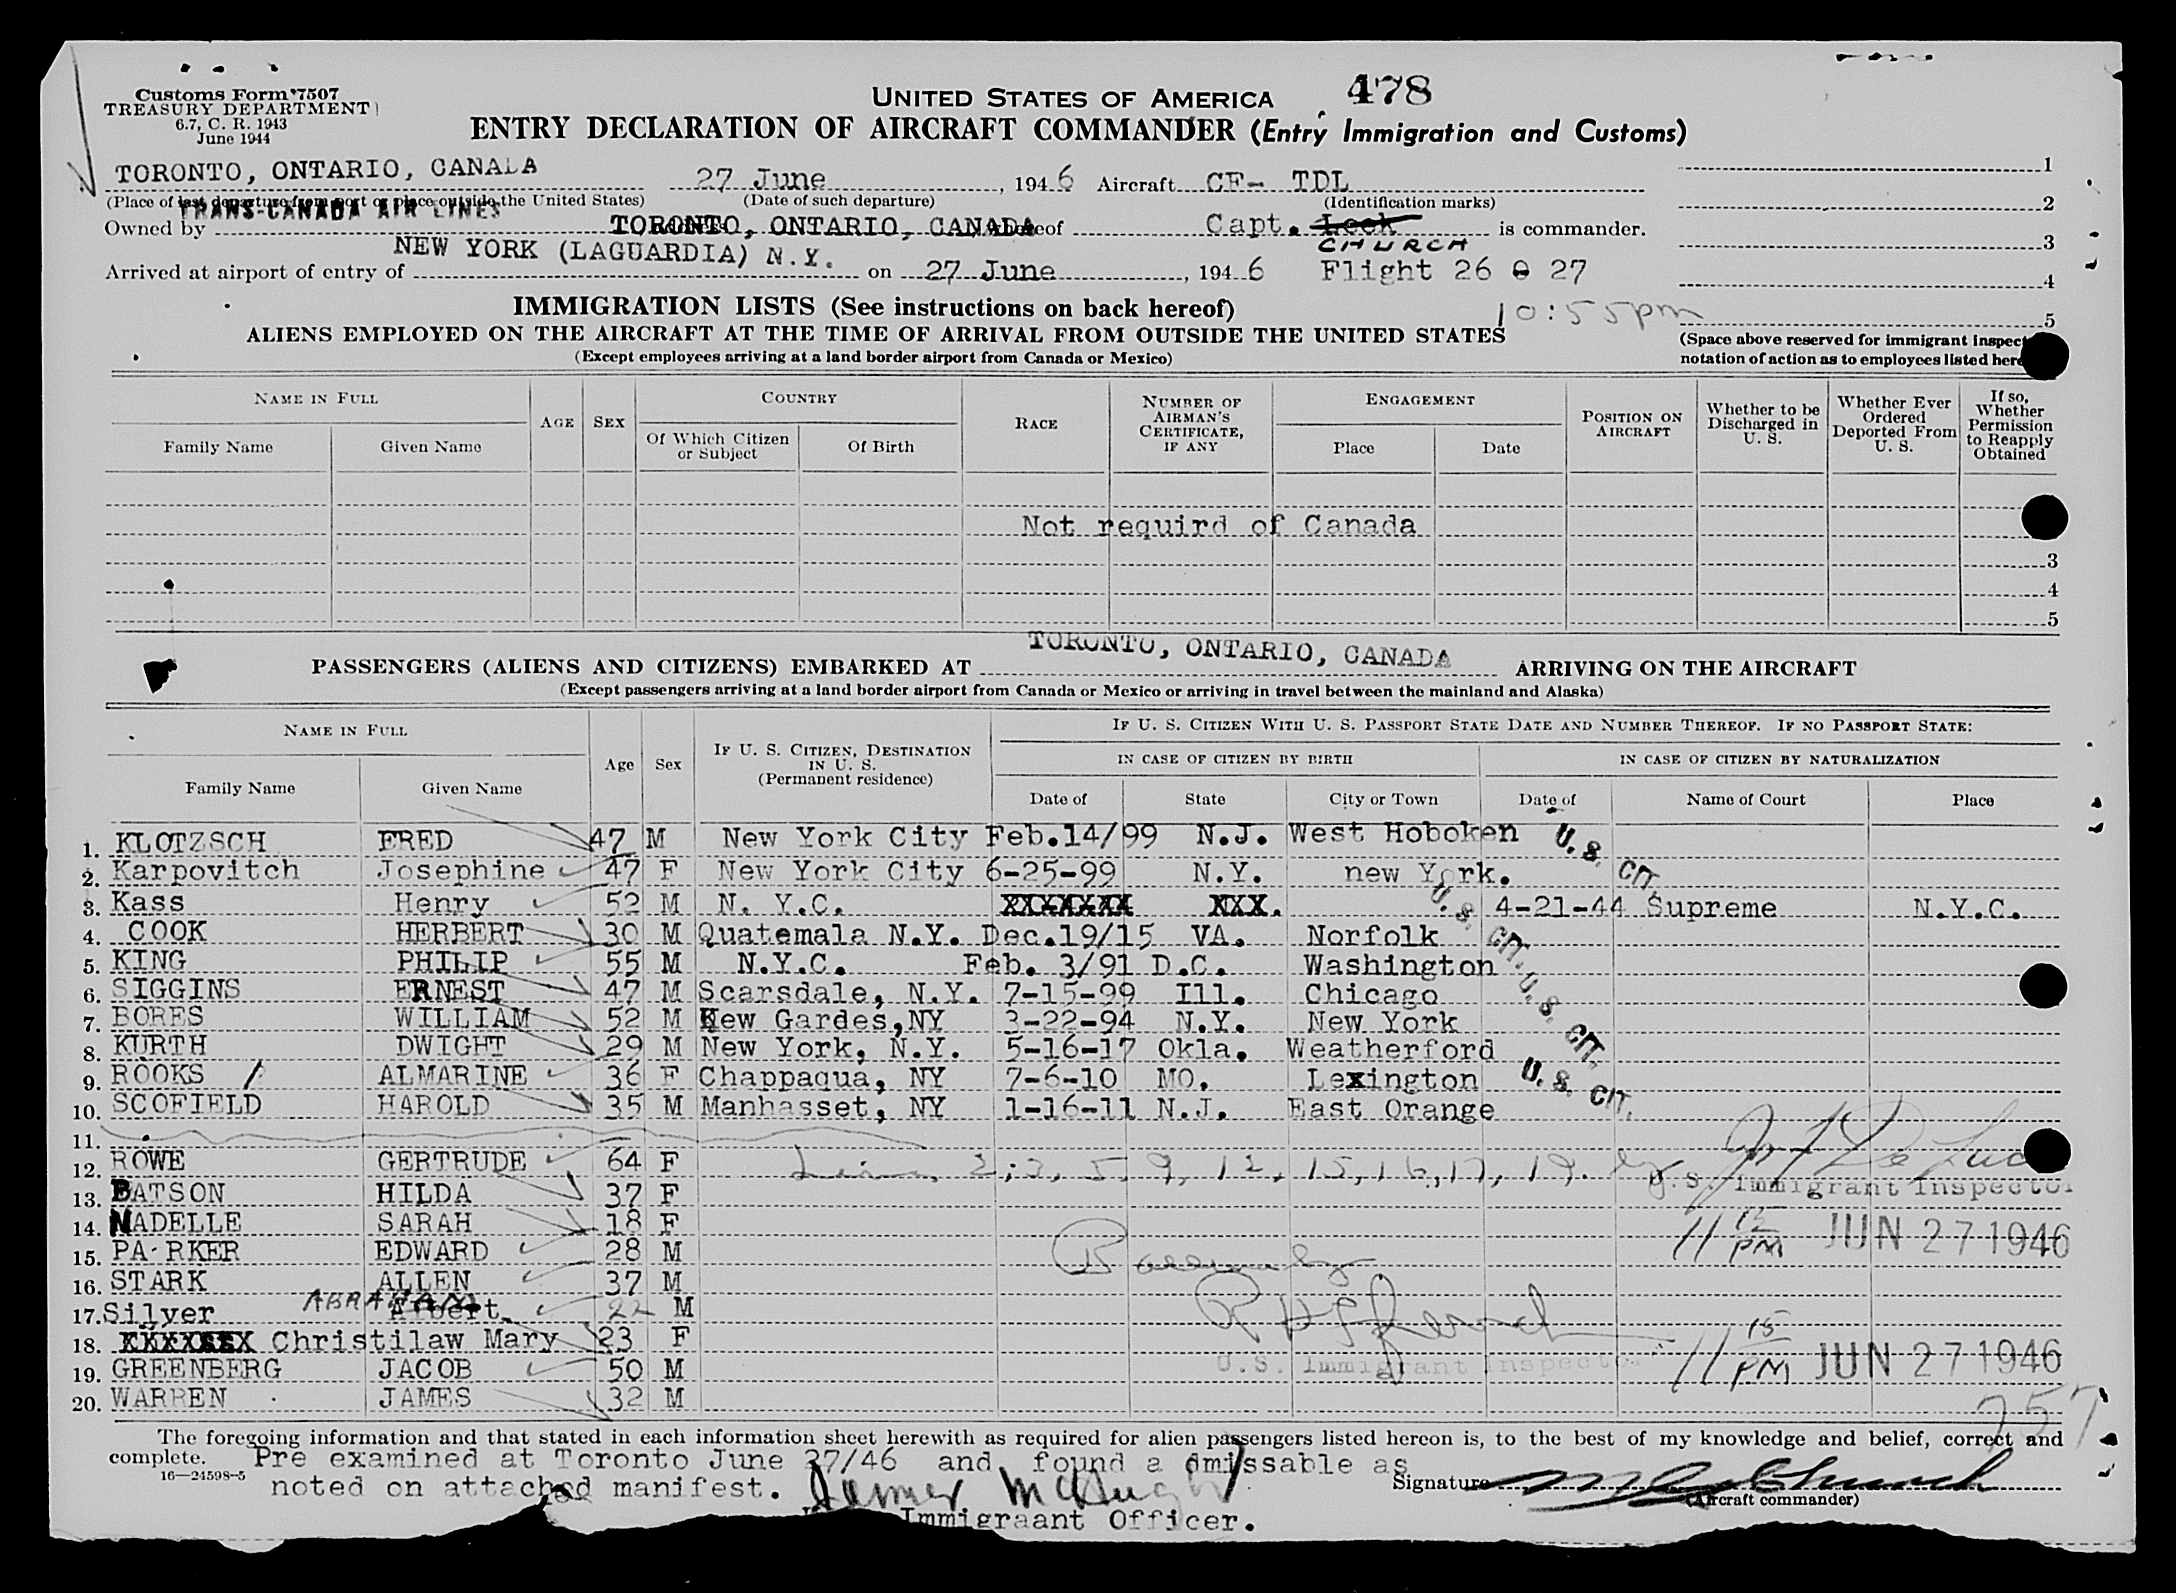 Customs Form 7507
TREASURY DEPARTMENT
6.7, C. R. 1943
June 1944
UNITED STATES OF AMERICA 478
ENTRY DECLARATION OF AIRCRAFT COMMANDER (Entry Immigration and Customs)
TORONTO, ONTARIO, CANADA 27 June, 1946 Aircraft CF- TDL 1
(Place of last departure from port or place outside the United States) (Date of such departure) (Identification marks) 2
TRANS-CANADA AIR LINES
Owned by TORONTO, ONTARIO, CANADA Capt. Leek is commander.
CHURCH 3
Arrived at airport of entry of NEW YORK (LAGUARDIA) N.Y. on 27 June, 1946 Flight 26 27 4
IMMIGRATION LISTS (See instructions on back hereof) 10:55pm 5
ALIENS EMPLOYED ON THE AIRCRAFT AT THE TIME OF ARRIVAL FROM OUTSIDE THE UNITED STATES
(Except employees arriving at a land border airport from Canada or Mexico)
(Space above reserved for immigrant inspect
notation of action as to employees listed here
NAME IN FULL
Family Name Given Name AGE SEX
COUNTRY
Of Which Citizen or Subject Of Birth
RACE
NUMBER OF AIRMAN'S CERTIFICATE, IF ANY
ENGAGEMENT
Place Date
POSITION ON AIRCRAFT
Whether to be Discharged in U. S.
Whether Ever Ordered Deported From U. S.
If so, Whether Permission to Reapply Obtained
Not requird of Canada
3
4
5
PASSENGERS (ALIENS AND CITIZENS) EMBARKED AT TORONTO, ONTARIO, CANADA ARRIVING ON THE AIRCRAFT
(Except passengers arriving at a land border airport from Canada or Mexico or arriving in travel between the mainland and Alaska)
NAME IN FULL
Family Name Given Name Age Sex
IF U. S. CITIZEN, DESTINATION IN U. S. (Permanent residence)
IF U. S. CITIZEN WITH U. S. PASSPORT STATE DATE AND NUMBER THEREOF. IF NO PASSPORT STATE:
IN CASE OF CITIZEN BY BIRTH IN CASE OF CITIZEN BY NATURALIZATION
Date of State City or Town Date of Name of Court Place
1. KLOTZSCH FRED 47 M New York City Feb.14/99 N.J. West Hoboken U. S. CIT.
2. Karpovitch Josephine 47 F New York City 6-25-99 N.Y. new York.
3. Kass Henry 52 M N. Y.C. XXXXXXX XXX. U. S. CIT. 4-21-44 Supreme N.Y.C.
4. COOK HERBERT 30 M Quatemala N.Y. Dec.19/15 VA. Norfolk
5. KING PHILIP 55 M N.Y.C. Feb. 3/91 D.C. Washington
6. SIGGINS ERNEST 47 M Scarsdale, N.Y. 7-15-99 Ill. Chicago U. S. CIT.
7. BORES WILLIAM 52 M New Gardes,NY 3-22-94 N.Y. New York
8. KURTH DWIGHT 29 M New York, N.Y. 5-16-17 Okla. Weatherford
9. ROOKS ALMARINE 36 F Chappaqua, NY 7-6-10 MO. Lexington U. S. CIT.
10. SCOFIELD HAROLD 35 M Manhasset, NY 1-16-11 N.J. East Orange
11.
12. ROWE GERTRUDE 64 F 2, 3, 5, 9, 12, 15, 16, 17, 19. by
13. BATSON HILDA 37 F U.S. Immigrant Inspector
14. NADELLE SARAH 18 F 11 15 PM JUN 27 1946
15. PA-RKER EDWARD 28 M
16. STARK ALLEN 37 M
17. Silver ABRAHAM Albert 22 M
18. XXXXXXX Christilaw Mary 23 F
19. GREENBERG JACOB 50 M U.S. Immigrant Inspector 11 15 PM JUN 27 1946
20. WARREN JAMES 32 M
757
The foregoing information and that stated in each information sheet herewith as required for alien passengers listed hereon is, to the best of my knowledge and belief, correct and
complete. Pre examined at Toronto June 27/46 and found a dmissable as
16—24598-5 noted on attached manifest. Signature
(Aircraft commander)
Immigraant Officer.